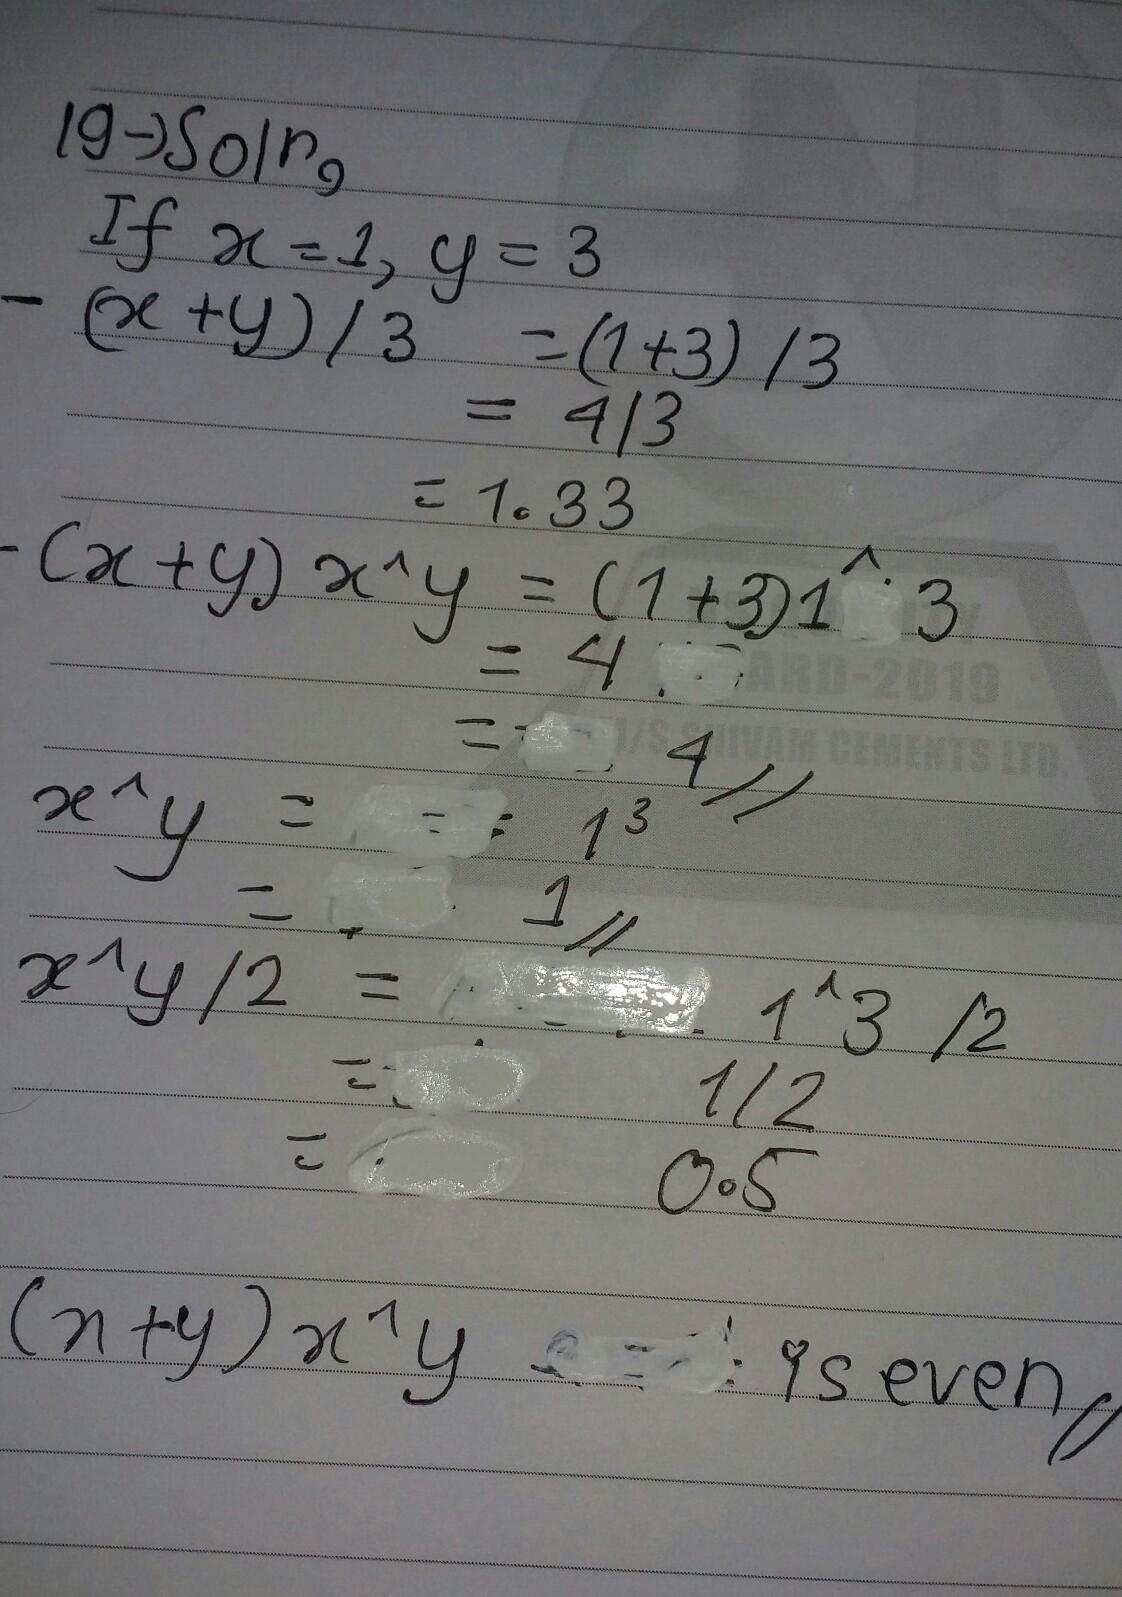 19→Soln,
If x=1, y=3
- (x+y)/3 =(1+3)/3
= 4/3
= 1.33
-(x+y) x^y = (1+3)1^3
= 4
= 4//
x^y = 1³
= 1//
x^y/2 = 1^3 /2
= 1/2
= 0.5
(x+y) x^y is even//
ARD-2019
M/S SHIVAM CEMENTS LTD.